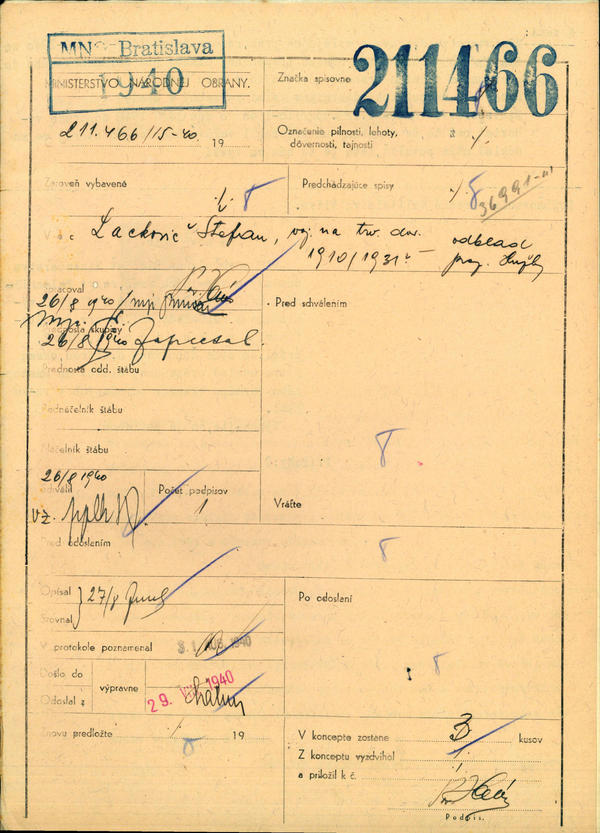 MNO Bratislava
1940
MINISTERSTVO NÁRODNEJ OBRANY.
Značka spisovne
211466
211.466/15-40 19
Označenie pilnosti, lehoty,
dôvernosti, tajnosti
Zároveň vybavené
Predchádzajúce spisy
36991
Vec Lackovič Štefan, voj. na trv. dov.
1910/1931 – odklad
prez. služby
Spracoval
26/8 1940
Prednosta skupiny
26/8 1940
Pred schválením
Prednosta odd. štábu
Podnáčelník štábu
Náčelník štábu
26/8 1940
Schválil
Počet podpisov
1
vz.
Vráťte
Pred odoslaním
Opísal
27/8
Srovnal
Po odoslaní
V protokole poznamenal
31 AUG. 1940
Došlo do
výpravne
29. VIII. 1940
Odoslal z
Znovu predložte 19
V koncepte zostane 3 kusov
Z konceptu vyzdvihol
a priložil k č.
Podpis.